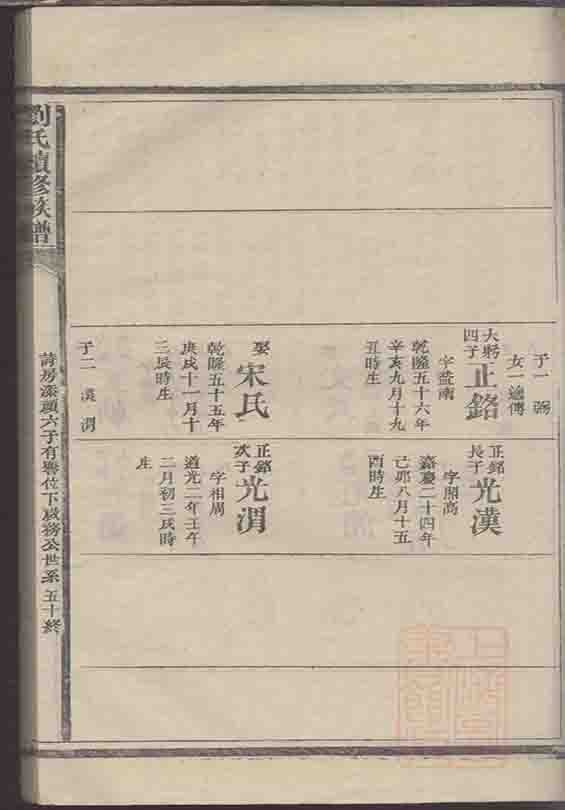 子一 弼
女一 適傅
大躬
四子
正銘
字益南
乾隆五十六年
辛亥九月十九
丑時生
娶
宋氏
乾隆五十五年
庚戌十一月十
三辰時生
子二 漢 渭
正銘
長子
光漢
字開高
嘉慶二十四年
己卯八月十五
酉時生
正銘
次子
光渭
字相周
道光二年壬午
二月初三戌時
生
劉氏續修族譜
詩房藻頭六子有譽位下為務公世系 五十終